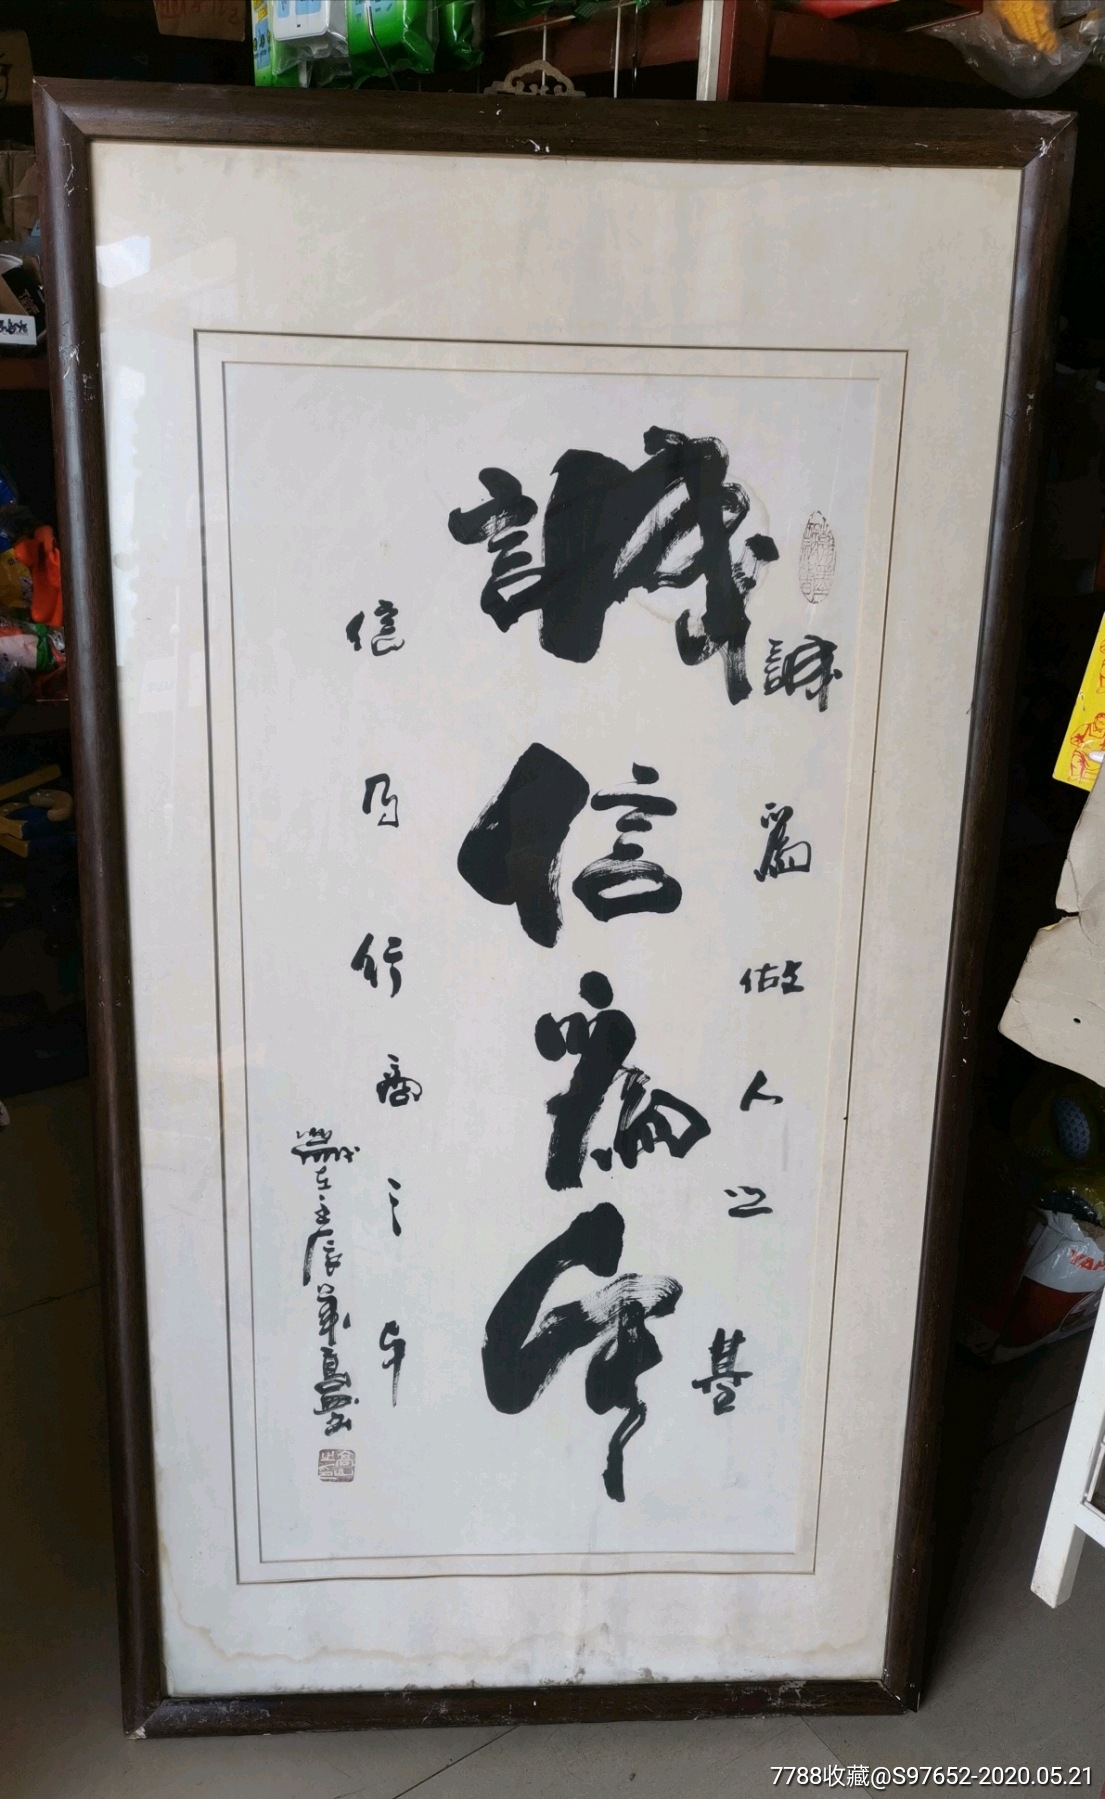 誠為做人之基
誠信為本
信乃行商之本
歲在壬辰年
7788收藏@S97652-2020.05.21